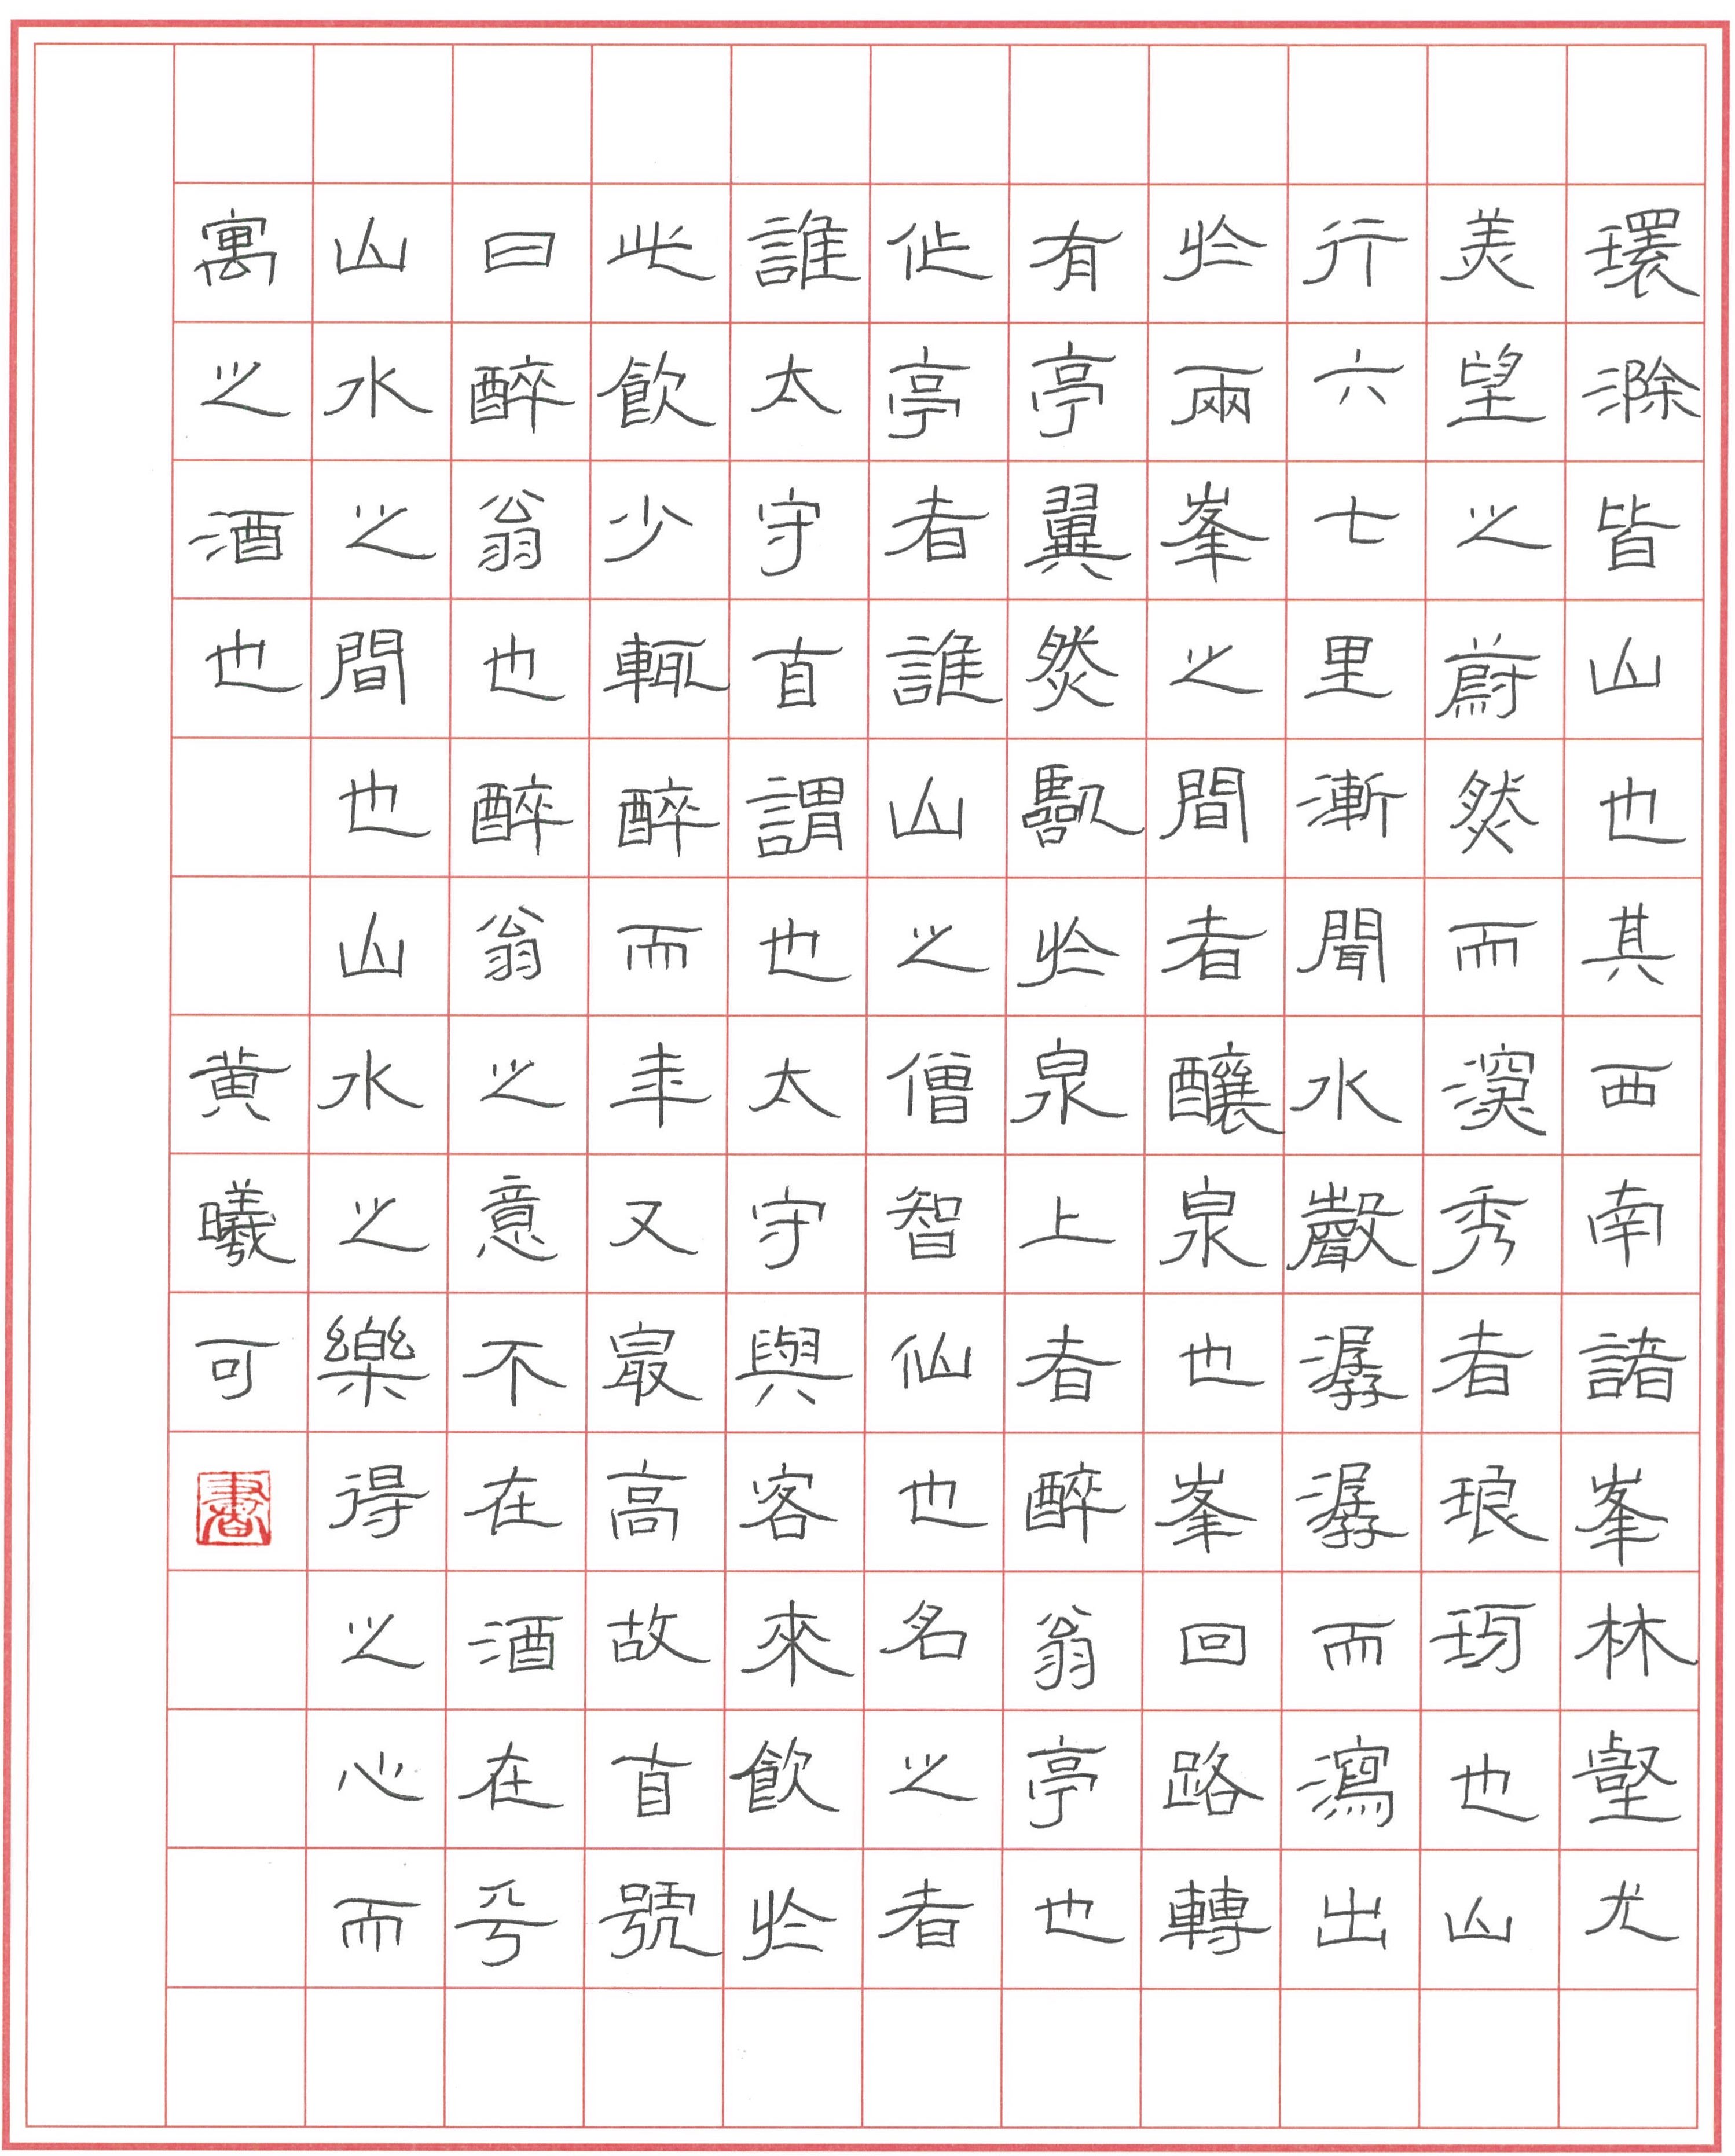 環滁皆山也其西南諸峯林壑尤
美望之蔚然而深秀者琅玡也山
行六七里漸聞水聲潺潺而瀉出
於兩峯之間者釀泉也峯回路轉
有亭翼然臨於泉上者醉翁亭也
作亭者誰山之僧智仙也名之者
誰太守自謂也太守與客來飲於
此飲少輒醉而年又最高故自號
曰醉翁也醉翁之意不在酒在乎
山水之間也山水之樂得之心而
寓之酒也 黄曦可 書